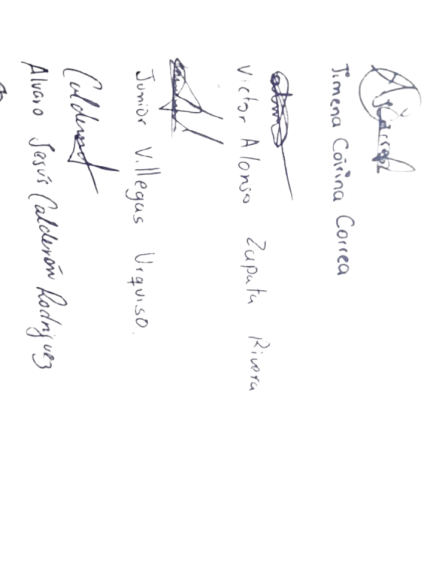 Jimena Corina Correa
Victor Alonso Zapata Rivera
Junior Villegas Urquiso.
Calderon
Alvaro Jesús Calderón Rodriguez